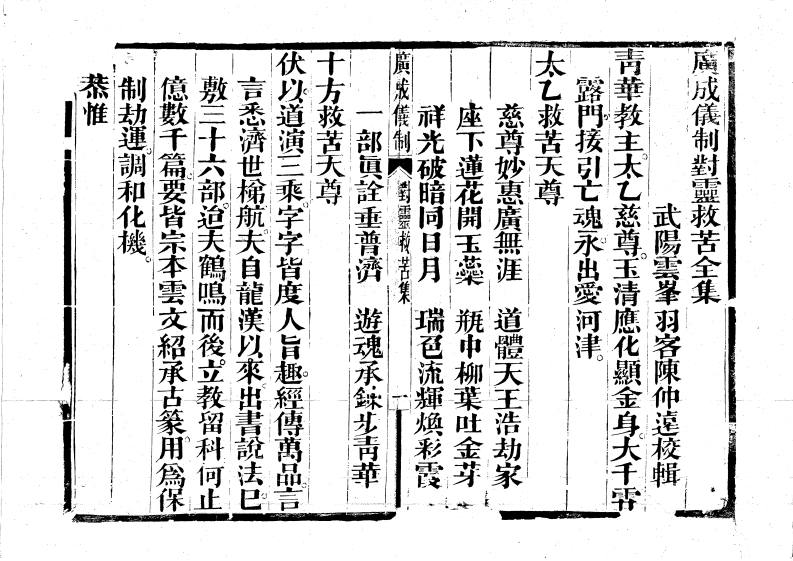 廣成儀制對靈救苦全集
武陽雲峯羽客陳仲遠校輯
青華教主。太乙慈尊。玉清應化顯金身。大千雷
露門。接引亡魂。永出愛河津。
太乙救苦天尊
慈尊妙惠廣無涯　道體天王浩劫家
座下蓮花開玉蘂　瓶中柳葉吐金芽
祥光破暗同日月　瑞色流輝煥彩霞
廣成儀制　對靈救苦集　一
一部眞詮垂普濟　遊魂承錄步青華
十方救苦天尊
伏以。道演三乘。字字皆度人旨趣。經傳萬品。言
言悉濟世梯航。夫自龍漢以來。出書說法。已
敷三十六部。迨夫鶴鳴而後。立教留科。何止
億數千篇。要皆宗本雲文。紹承古篆。用爲保
制劫運。調和化機。
恭惟